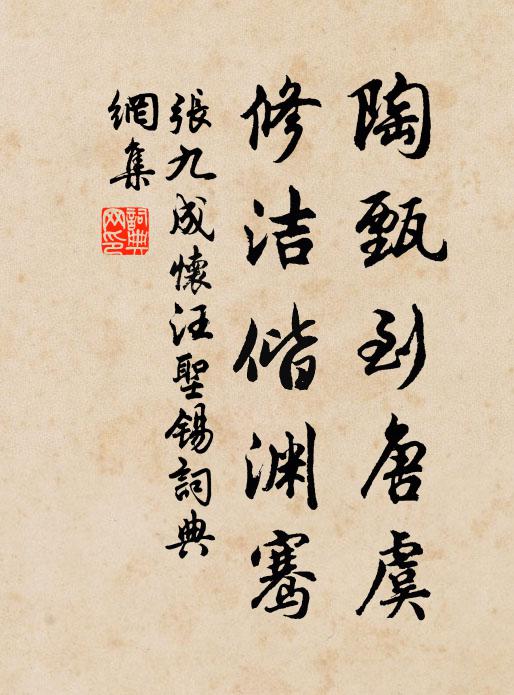 陶甄到唐虞
修洁偕渊骞
張九成懷汪聖錫詞典
網集
詞典
网印